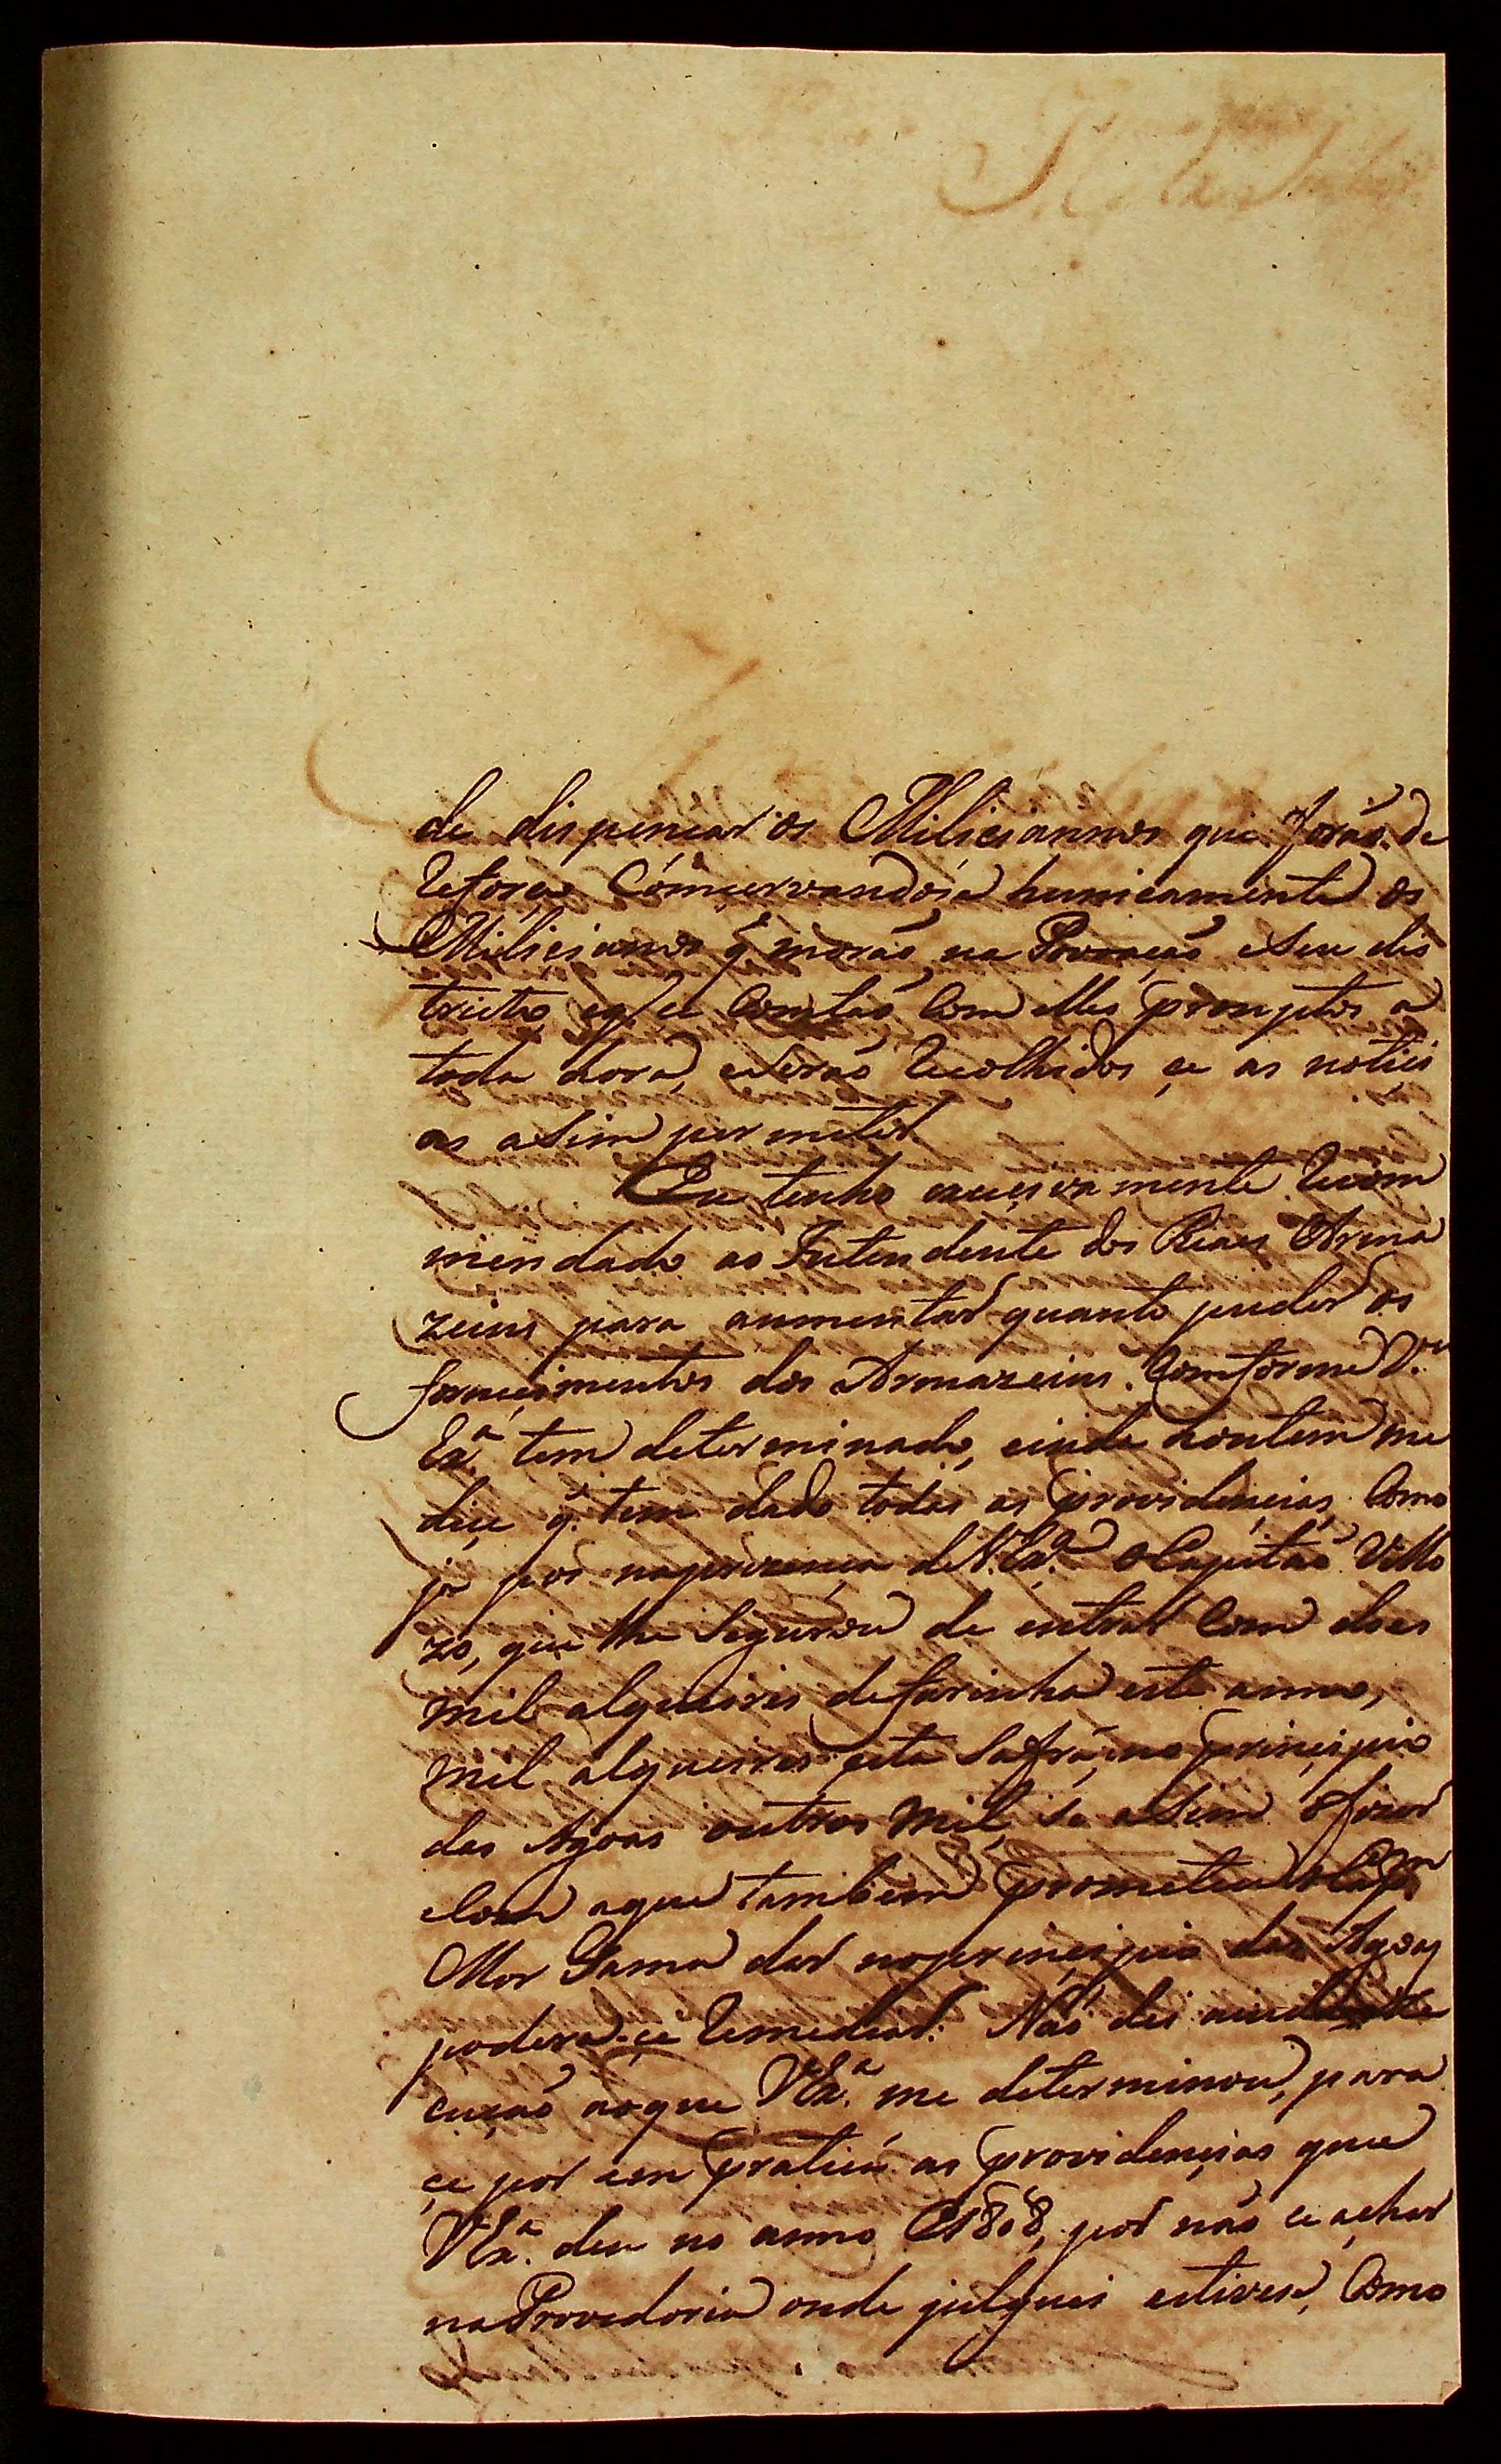 de dispençar os Miliciannos que forão de
Reforço Comcervandoçe hunicamente os
Milicianos q̃ morão na Povoação e Seu dis
tricto, eq̃ çe Contão Com elles promptos a
toda hora, e Serão Recolhidos çe as notici
as aSim permitir
Eu tenho exceçivamente Recom
mendado ao Intendente dos Reaes Arma
zeins para aumentar quanto puder os
forneçimentos dos Armazeins. Comforme V.
Exª. tem determinado, einda hontem me
diçe q̃. tem dado todas as providençias, Como
já pos naprezença deV.Exª. oCapitão Vello
zo, que lhe Segurou de entrar Com does
mil alqueires defarinha este anno,
mil alqueires esta Safra, eno prinçipio
das Agoas outros mil, se aSim ofizer
eCom aque tambem prometeu oCapᵐ
Mor Gama dar noprinçipio das Agoas
poderá-çe Remediar: Não dei ainda
cução aoque VExª. me determinou, para
çe por em pratica as providençias que
VExª. deu no anno de 1808, por não çe achar
naProvedoria onde julguei estivese, Como